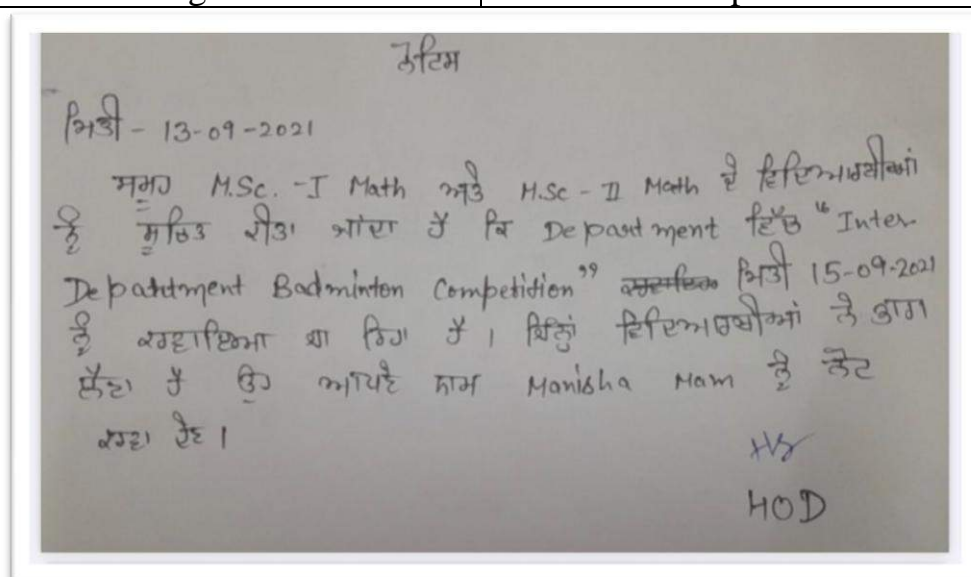 ਨੋਟਿਸ
ਮਿਤੀ - 13-09-2021
ਸਮੂਹ M.Sc. -I Math ਅਤੇ M.Sc - II Math ਦੇ ਵਿਦਿਆਰਥੀਆਂ
ਨੂੰ ਸੂਚਿਤ ਕੀਤਾ ਜਾਂਦਾ ਹੈ ਕਿ Department ਵਿੱਚ "Inter-
Department Badminton Competition" ਮਿਤੀ 15-09-2021
ਨੂੰ ਕਰਵਾਇਆ ਜਾ ਰਿਹਾ ਹੈ । ਜਿਨ੍ਹਾਂ ਵਿਦਿਆਰਥੀਆਂ ਨੇ ਭਾਗ
ਲੈਣਾ ਹੈ ਉਹ ਆਪਣੇ ਨਾਮ Manisha Mam ਨੂੰ ਨੋਟ
ਕਰਵਾ ਦੇਣ ।
HOD